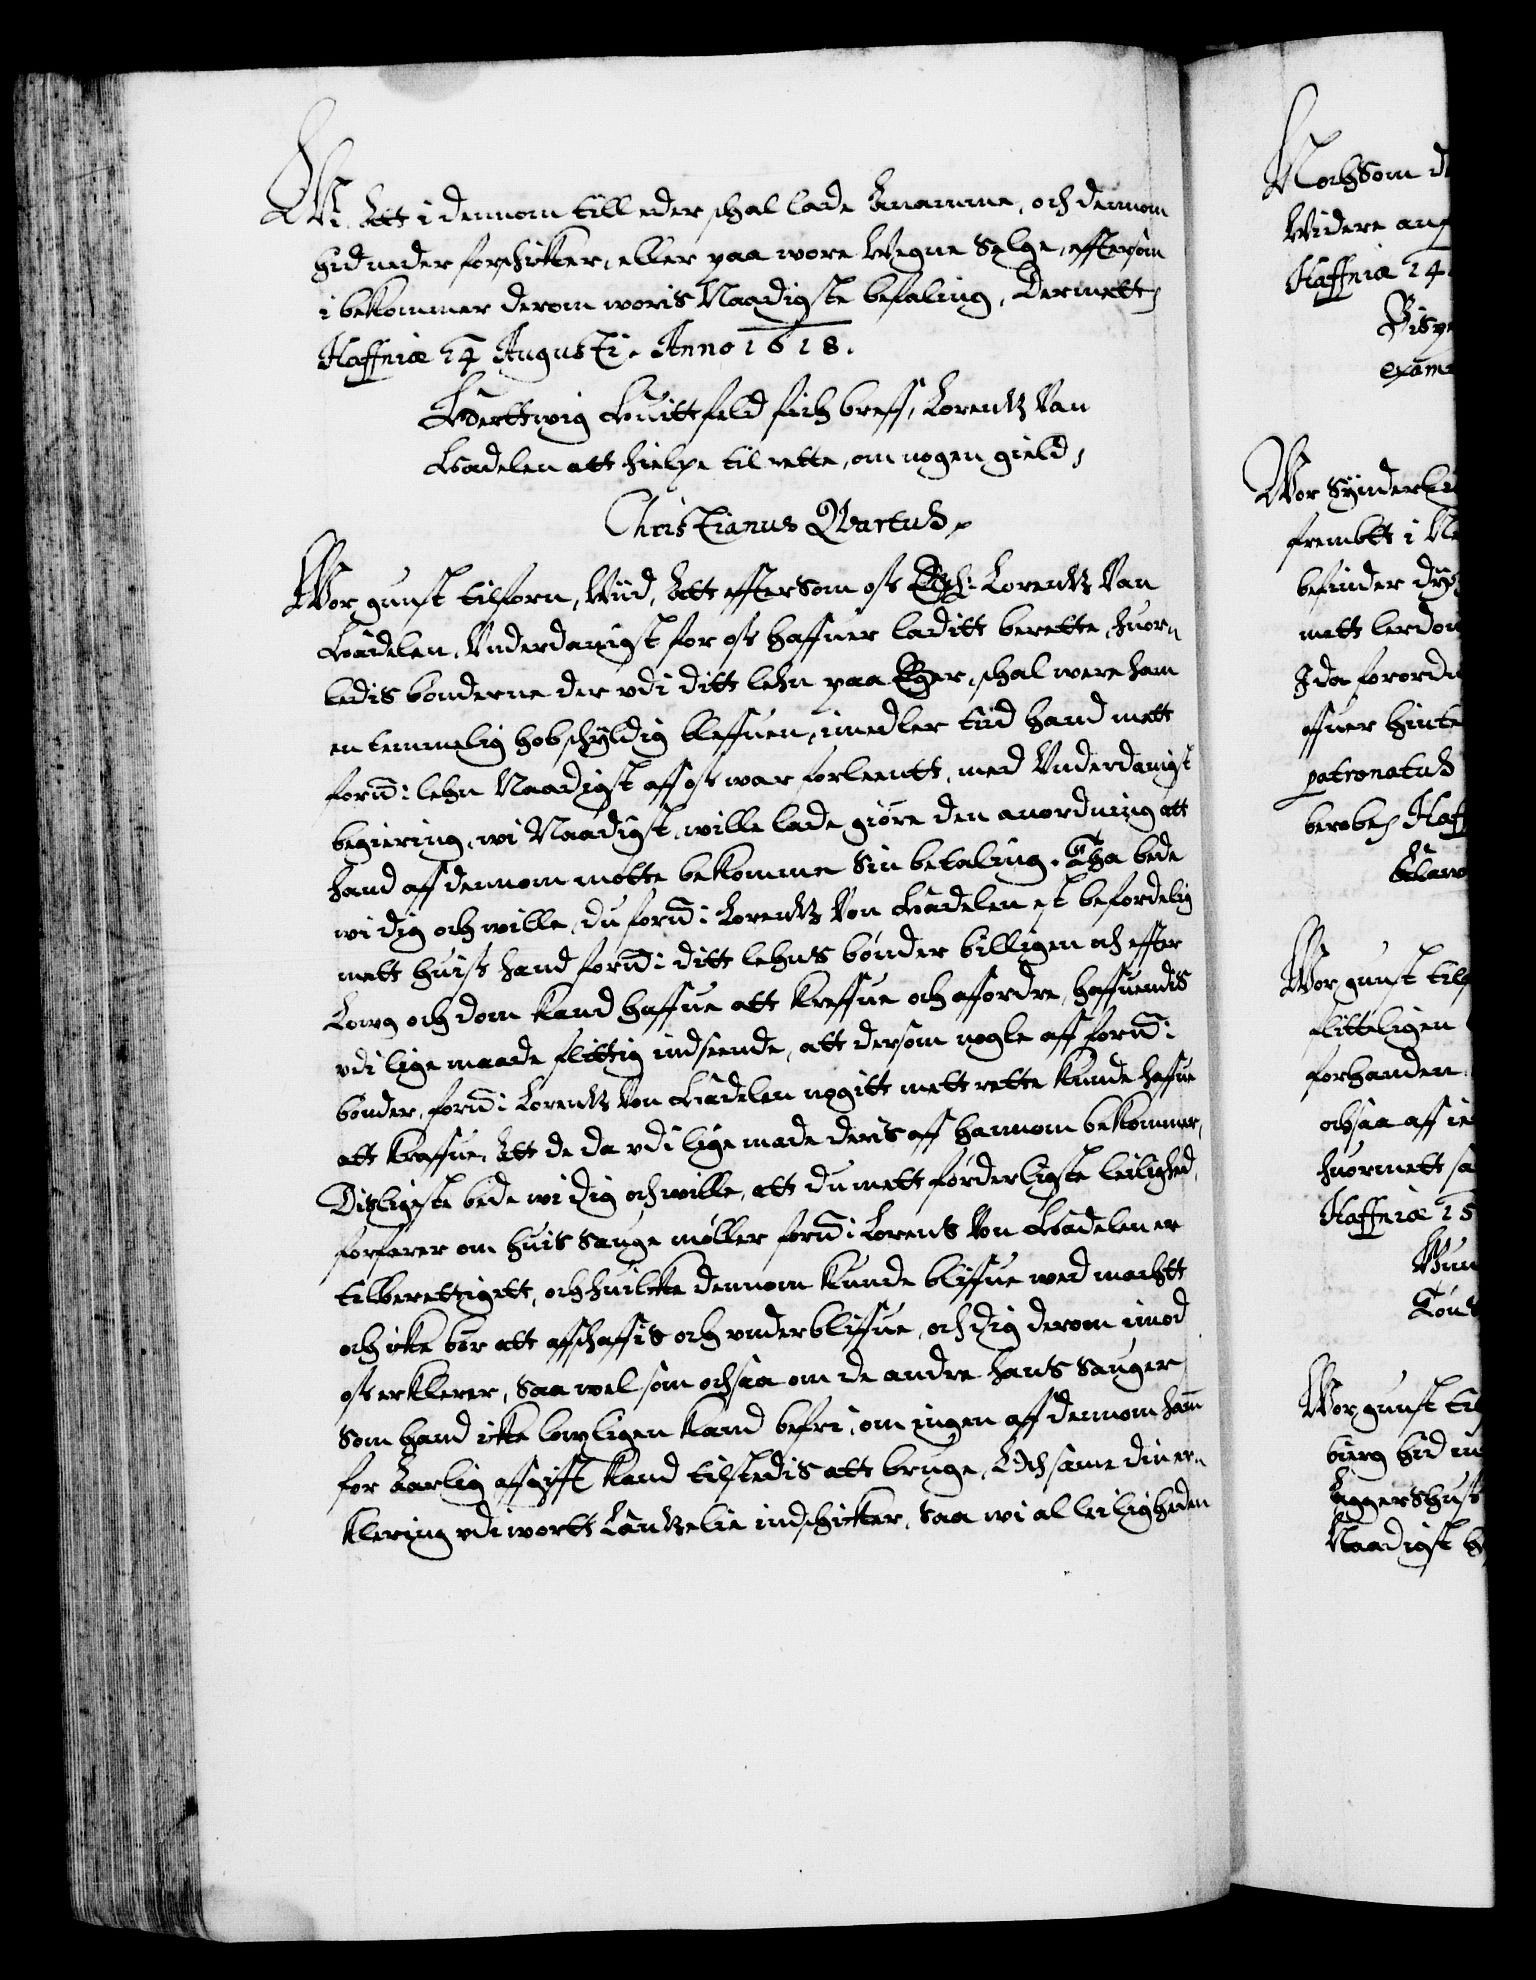 Wi, Att i dennom till eder schal lade Anamme, och dennom
hid neder forschicker, eller paa wore Wegne Selge, efftersom
i bekommer derom woris Naadigste befaling, Dermett
Haffniæ 14 Augusti. Anno 1618.
Hderttwig Huittfeld fich breff, Lorentz Van
Hadelen att hielpe til rette, om nogen gield,
Christianus Qvartus
Wor gunst tilforn, Wiid, Att effterSom oss Elsch: Lorentz Van
Hadelen, Vnderdanigst for oss haffuer laditt berette, huor¬
ledis bønderne der vdi ditt lehn paa Eger, schal were ham
en temmelig hob schyldig bleffuen, imedler tiid hand mett
fornd: lehn Naadigst aff oss war forleentt, med Vnderdanigst
begiering, wi Naadigst, wille lade giøre den anordning att
hand aff dennom motte bekomme Sin betaling. Tha bede
wi dig och wille, du fornd: Lorentz Von Hadelen est befordelig
mett huiss hand fornd: ditt lehns bønder billigen och effter
Lowg och dom kand haffue att kreffue och affordre, haffuendis
vdi lige maade flittig indseende, att dersom nogle aff fornd:
bønder, fornd: Lorentz Von Hadelen nogitt mett rette kunde haffue
att kraffue, Att de da vdi lige made deris aff hannom bekommer,
Disligeste bede wi dig och wille, att du mett førderligste leilighed,
forfarer om huis Sauge møller fornd: Lorens Von Hadelen er
tilberettigett, och huilcke dennom kunde bliffue wed machtt
och icke bør att affschaffis och vnderbliffue, och dig derom imod
oss erklerer, Saa wel som ochsaa om de andre hans Sauger
Som hand icke lowligen kand befri, om ingen aff dennom ham
for Aarlig affgifft kand tilstedis att bruge, Och same din er¬
klering vdi wortt Cantzelie indschicker, Saa wi al leiligheden
NochSom d
Widere ang
Haffniæ 14
Bispe
exame
Wor Synderli
frembtt i N
befinder dy
mett lerdom
I da forordn
offuer hinte
patronatus
berobe, Haf
Wor gunst tilf
flitteligen
forhanden
ochsaa aff
huormett sa
Haffniæ 15
Wor gunst til
bierg hid in
Aggershuss
Naadigst